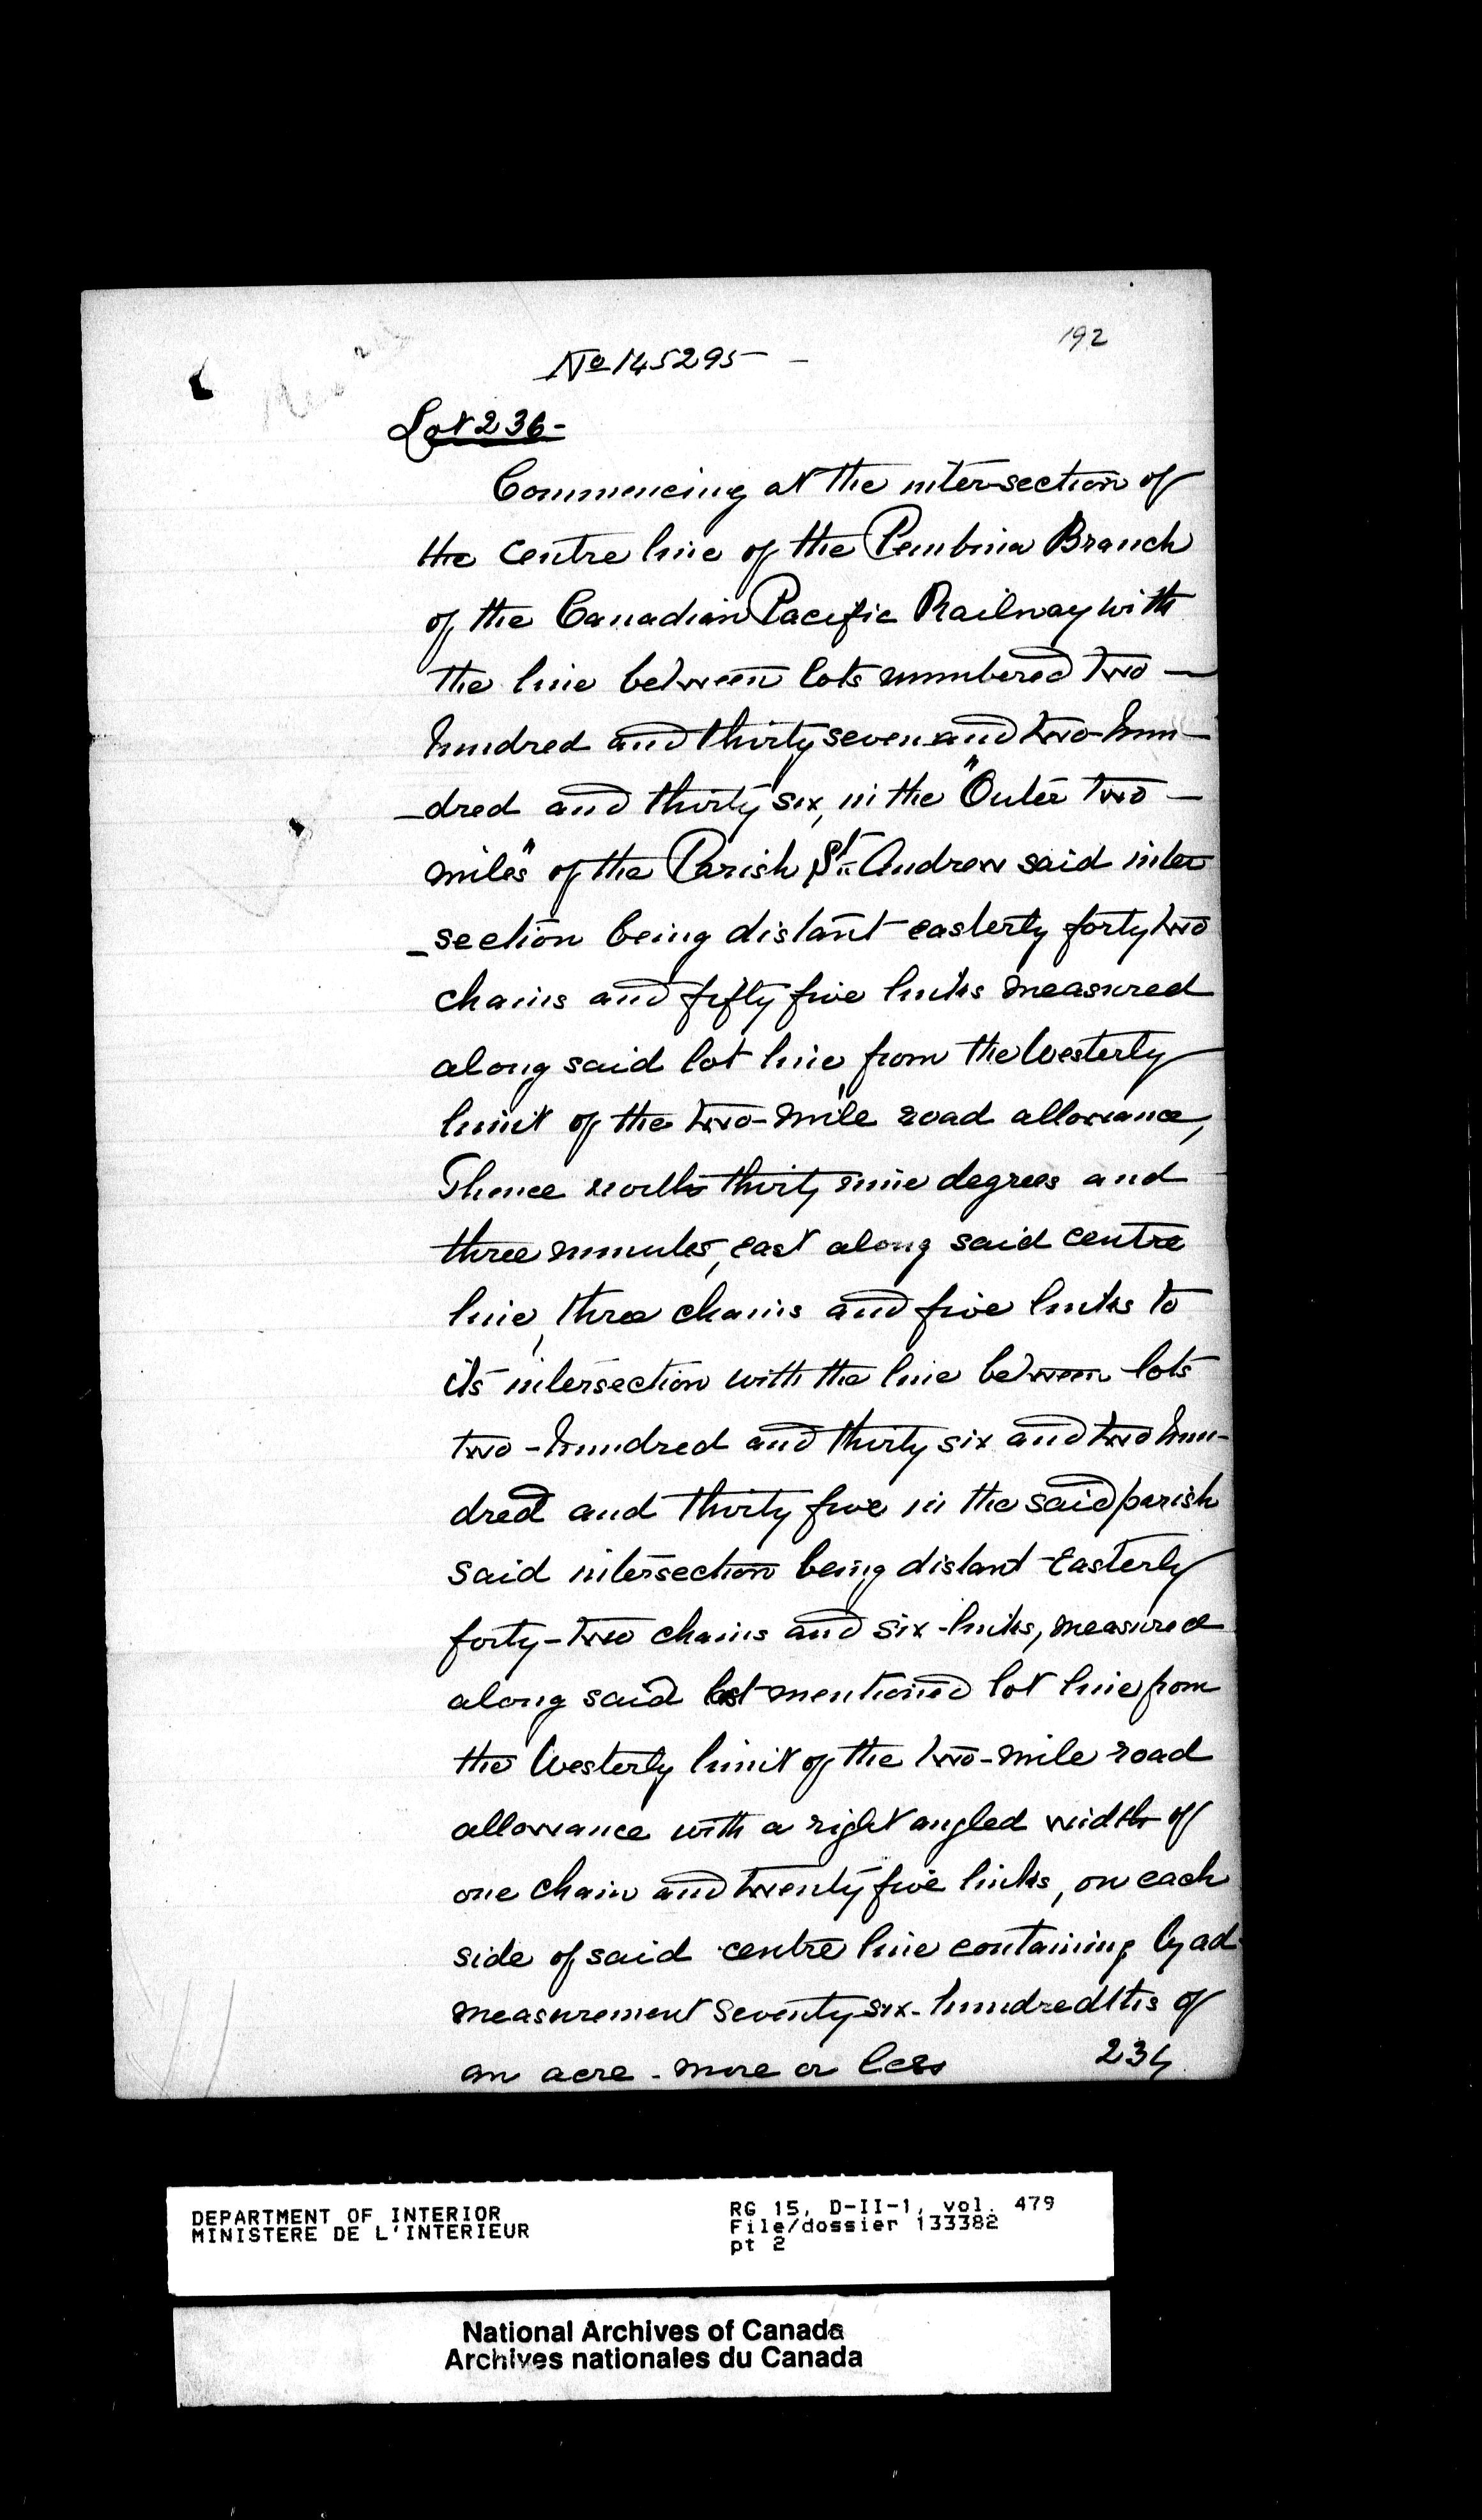 192
No 145295 -
Lot 236 -
Commencing at the inter-section of
the centre line of the Pembina Branch
of the Canadian Pacific Railway with
the line between lots numbered two -
hundred and thirty seven and two-hun-
-dred and thirty six, in the "Outer two -
miles" of the Parish St. Andrew said inter
-section being distant easterly forty two
chains and fifty five links measured
along said lot line, from the Westerly
limit of the two-mile road allowance,
Thence north thirty nine degrees and
three minutes, east along said centre
line, three chains and five links to
its intersection with the line between lots
two-hundred and thirty six and two hun-
dred and thirty five in the said parish
said intersection being distant Easterly
forty-two chains and six-links, measured
along said last mentioned lot line from
the Westerly limit of the two-mile road
allowance with a right angled width of
one chain and twenty five links, on each
side of said centre line containing by ad
measurement seventy-six-hundredths of
an acre - more or less
DEPARTMENT OF INTERIOR
MINISTERE DE L'INTERIEUR
RG 15, D-II-1, vol. 479
File/dossier 133382
pt 2
National Archives of Canada
Archives nationales du Canada